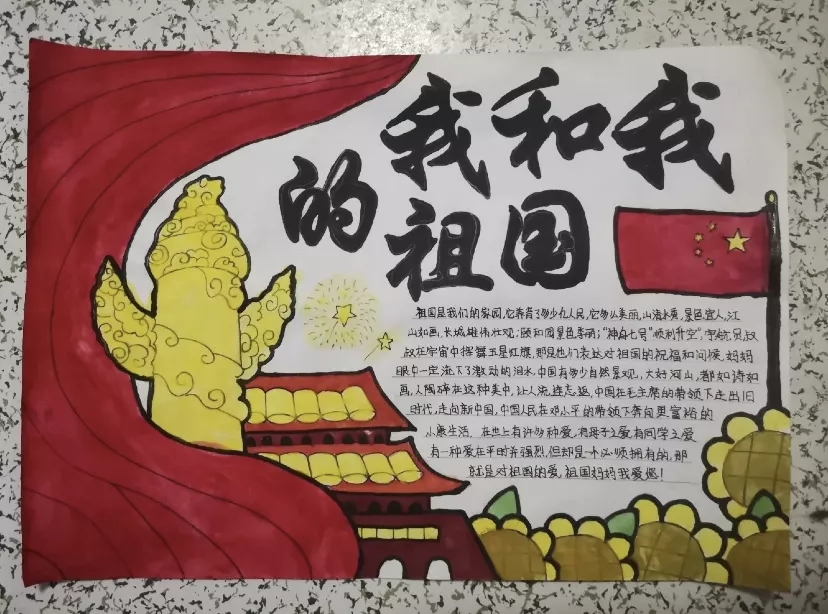 我和我
的祖国
祖国是我们的家园,它养育了多少九人民,它多么美丽,山清水秀,景色宜人,江
山如画,长城雄伟壮观;颐和园景色秀丽;"神舟七号"顺利升空",宇航员叔
叔在宇宙中挥舞五星红旗,那是他们表达对祖国的祝福和问候,妈妈
眼中一定流下了激动的泪水,中国有多少自然景观,大好河山,都如诗如
画,人陶碎在这种美中,让人流连忘返,中国在毛主席的带领下走出旧
时代,走向新中国,中国人民在邓小平的带领下奔向更富裕的
小康生活,在世上有许多种爱,有母子之爱有同学之爱
有一种爱在平时并强烈,但却是一个必须拥有的,那
就是对祖国的爱,祖国妈妈我爱您!